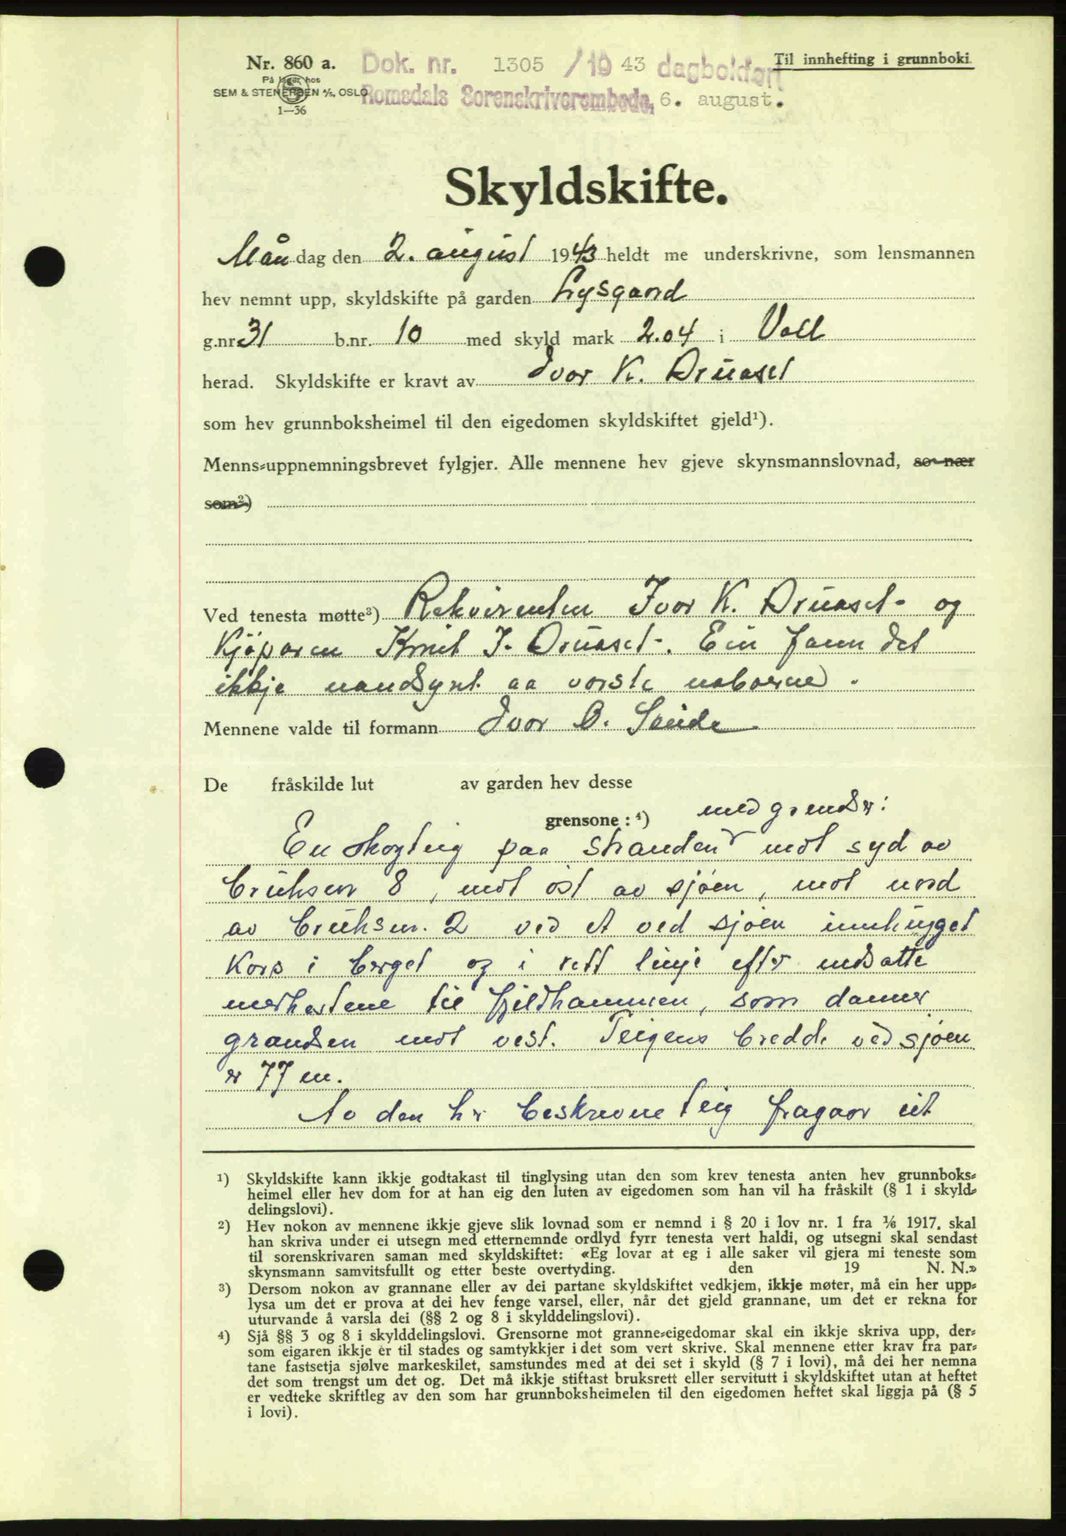 Nr. 860 a.
På lager hos
SEM & STENERSEN A/S, OSLO
1—36
Dok. nr. 1305 /19 43 dagbokført
Romsdals Sorenskriverembede, 6. august.
Til innhefting i grunnboki
Skyldskifte.
Måndag den 2. august 1943 heldt me underskrivne, som lensmannen
hev nemnt upp, skyldskifte på garden Lysgaard
g.nr. 31 b.nr. 10 med skyld mark 2.04 i Voll
herad. Skyldskifte er kravt av Ivar K. Druaset
som hev grunnboksheimel til den eigedomen skyldskiftet gjeld¹).
Menns-uppnemningsbrevet fylgjer. Alle mennene hev gjeve skynsmannslovnad, so nær
som²)
Ved tenesta møtte³) Rekvirenten Ivar K. Druaset og
Kjøparen Knut I. Druaset. Ein fann det
ikkje naudsynt aa varsle naboerne.
Mennene valde til formann Ivar B.
De fråskilde lut av garden hev desse
grensone: ⁴) med grendser:
En skogteig paa stranden mot syd av
bruksnr 8, mot øst av sjøen, mot nord
av bruksnr. 2 ved et ved sjøen innhugget
Kors i berget og i rett linje efter nedsatte
merkestene til fjeldhammeren, som danner
grændsen mot vest. Teigens bredde ved sjøen
er 77 m.
Av den her beskrevne teig fragaar eit
¹) Skyldskifte kann ikkje godtakast til tinglysing utan den som krev tenesta anten hev grunnboks-
heimel eller hev dom for at han eig den luten av eigedomen som han vil ha fråskilt (§ 1 i skyld-
delingslovi).
²) Hev nokon av mennene ikkje gjeve slik lovnad som er nemnd i § 20 i lov nr. 1 fra 1/6 1917, skal
han skriva under ei utsegn med etternemnde ordlyd fyrr tenesta vert haldi, og utsegni skal sendast
til sorenskrivaren saman med skyldskiftet: «Eg lovar at eg i alle saker vil gjera mi teneste som
skynsmann samvitsfullt og etter beste overtyding. den 19 N. N.»
³) Dersom nokon av grannane eller av dei partane skyldskiftet vedkjem, ikkje møter, må ein her upp-
lysa um det er prova at dei hev fenge varsel, eller, når det gjeld grannane, um det er rekna for
uturvande å varsla dei (§§ 2 og 8 i skylddelingslovi).
⁴) Sjå §§ 3 og 8 i skylddelingslovi. Grensorne mot granne-eigedomar skal ein ikkje skriva upp, der-
som eigaren ikkje er til stades og samtykkjer i det som vert skrive. Skal mennene etter krav fra par-
tane fastsetja sjølve markeskilet, samstundes med at dei set i skyld (§ 7 i lovi), må dei her nemna
det som trengst um det og. Det må ikkje stiftast bruksrett eller servitutt i skyldskiftet utan at heftet
er vedteke skriftleg av den som har grunnboksheimelen til den eigedomen heftet skal liggja på (§ 5
i lovi).